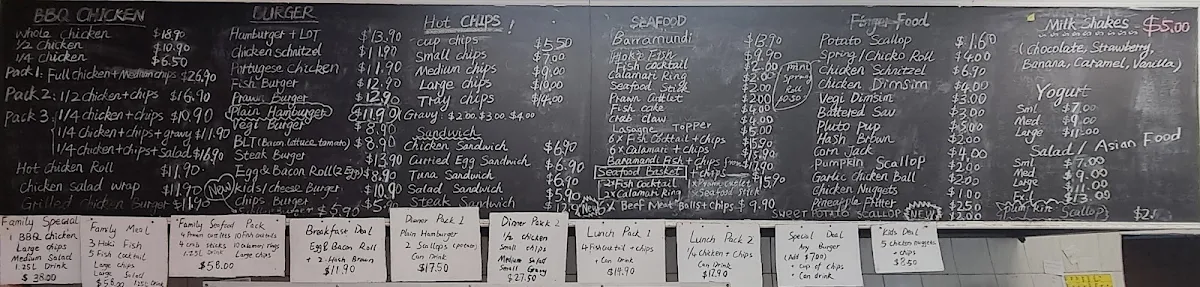 BBQ CHICKEN
Whole Chicken $18.90
1/2 Chicken $10.90
1/4 Chicken $6.50
Pack 1: Full chicken + Medium chips $26.90
Pack 2: 1/2 chicken + chips $16.90
Pack 3: 1/4 chicken + chips $10.90
1/4 chicken + chips + gravy $11.90
1/4 chicken + chips + Salad $16.90
Hot chicken Roll $11.90
Chicken salad wrap $11.90
Grilled chicken Burger $11.90
BURGER
Humburger + LOT $13.90
Chicken Schnitzel $11.90
Portugese Chicken $11.90
Fish Burger $12.90
Prawn Burger $12.90
Plain Hamburger $11.90
Vegi Burger $8.90
BLT (Bacon, lettuce, tomato) $8.90
Steak Burger $13.90
Egg & Bacon Roll $8.90
New kids/cheese Burger $10.90
Chips Burger $5.90
Hot CHIPS!
cup chips $5.50
Small chips $7.00
Medium chips $9.00
Large chips $10.00
Tray chips $14.00
Gravy: $2.00 $3.00 $4.00
Sandwich
Chicken Sandwich $6.90
Curried Egg Sandwich $6.90
Tuna Sandwich $6.90
Salad Sandwich $5.90
Steak Sandwich
SEAFOOD
Barramundi $13.90
Hoki Fish
Fish cocktail $2.00
Calamari Ring $2.00
Seafood Stick
Prawn Cutlet $2.00
Fish cake
Crab claw $4.00
Lasagne Topper $5.00
6x Fish Cocktail + chips
6x Calamari + chips
Baramandi Fish + chips
Seafood Basket + chips $15.90
2x Fish cocktail
2x Calamari Ring
1x Prawn cutlet
1x Seafood Stick
New
Beef Meat Balls + Chips $9.90
mini
spring
Roll
$0.50
Finger Food
Potato Scallop $1.60
Spring/Chicko Roll $4.00
Chicken Schnitzel $6.90
Chicken Dimsim
Vegi Dimsim $3.00
Battered Sav $3.00
Pluto pup $5.00
Hash Brown $2.00
Corn Jack $4.00
Pumpkin Scallop $2.00
Garlic Chicken Ball $2.00
Chicken Nuggets $1.00
Pineapple Fritter $2.50
SWEET POTATO SCALLOP NEW $2.00
Milk Shakes $5.00
(Chocolate, Strawberry,
Banana, Caramel, Vanilla)
Yogurt
Sml $7.00
Med $9.00
Large $11.00
Salad / Asian Food
Sml $7.00
Med $9.00
Large $11.00
$13.00
Pumpkin Scallop
Family Special
1 BBQ Chicken
Large chips
Medium Salad
1.25L Drink
$38.00
Family Meal
3 Hoki Fish
5 Fish Cocktail
Large chips
Large Salad
1.25L Drink
$58.00
Family Seafood Pack
4 Prawn cutlets 10 Fish cocktails
4 crab sticks 10 calamari rings
1.25L Drink Large chips
$58.00
Breakfast Deal
Egg & Bacon Roll
+ 2 Hash Brown
$11.90
Dinner Pack 1
Plain Hamburger
2 Scallops (potato)
Can Drink
$17.50
Dinner Pack 2
1/2 chicken
Small chips
Medium Salad
Small Gravy
$27.50
Lunch Pack 1
4 Fish cocktail + chips
+ Can Drink
$14.90
Lunch Pack 2
1/4 Chicken + Chips
Can Drink
$12.90
Special Deal
Any Burger
(Add $7.00)
+ Cup of chips
+ Can drink
Kids Deal
5 chicken nuggets
+ chips
$8.50